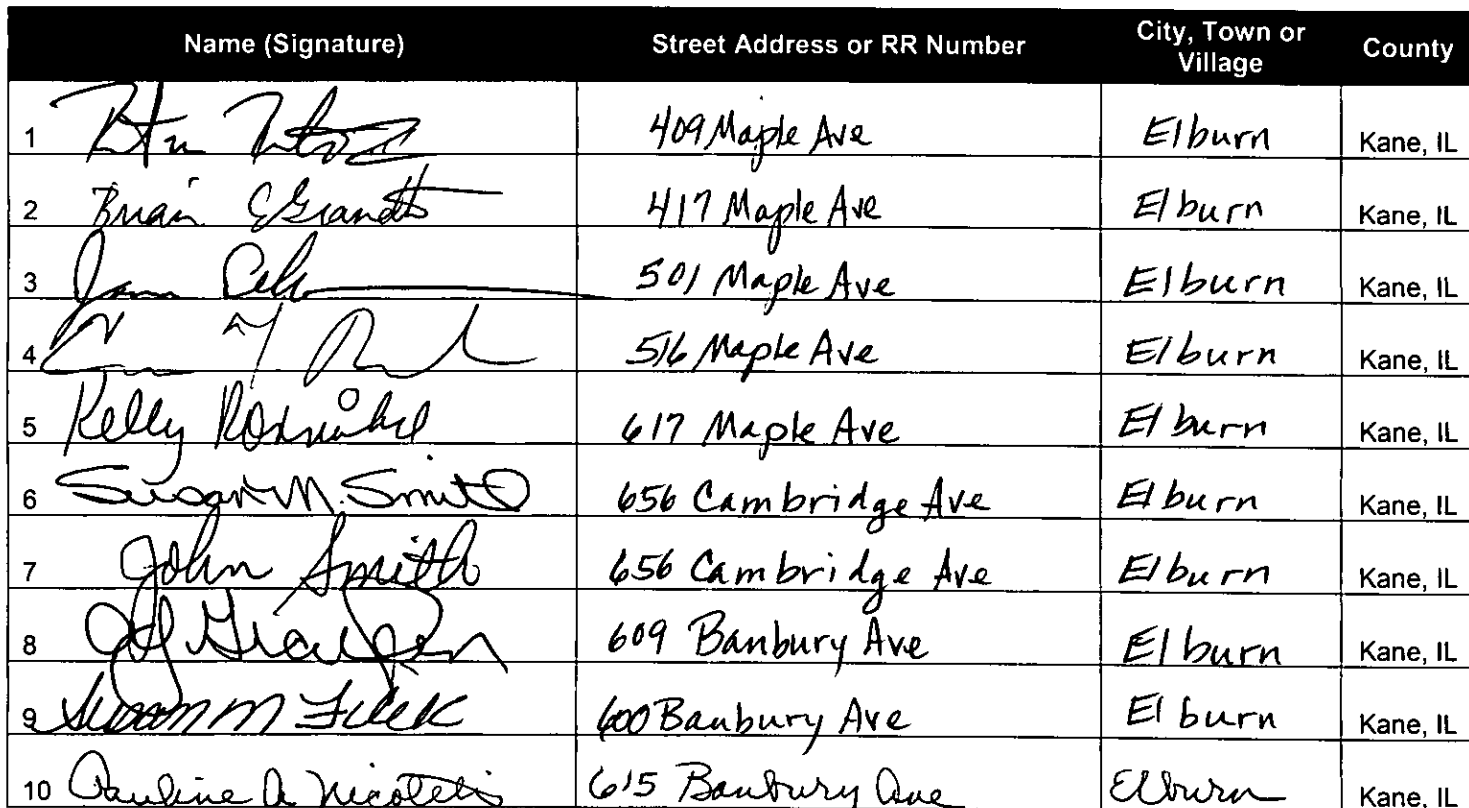 Name (Signature) Street Address or RR Number City, Town or Village County
1 409 Maple Ave Elburn Kane, IL
2 Brian 417 Maple Ave Elburn Kane, IL
3 501 Maple Ave Elburn Kane, IL
4 516 Maple Ave Elburn Kane, IL
5 Kelly 617 Maple Ave Elburn Kane, IL
6 Susan M. Smith 656 Cambridge Ave Elburn Kane, IL
7 John Smith 656 Cambridge Ave Elburn Kane, IL
8 609 Banbury Ave Elburn Kane, IL
9 Susan M 600 Banbury Ave Elburn Kane, IL
10 Pauline A 615 Banbury Ave Elburn Kane, IL